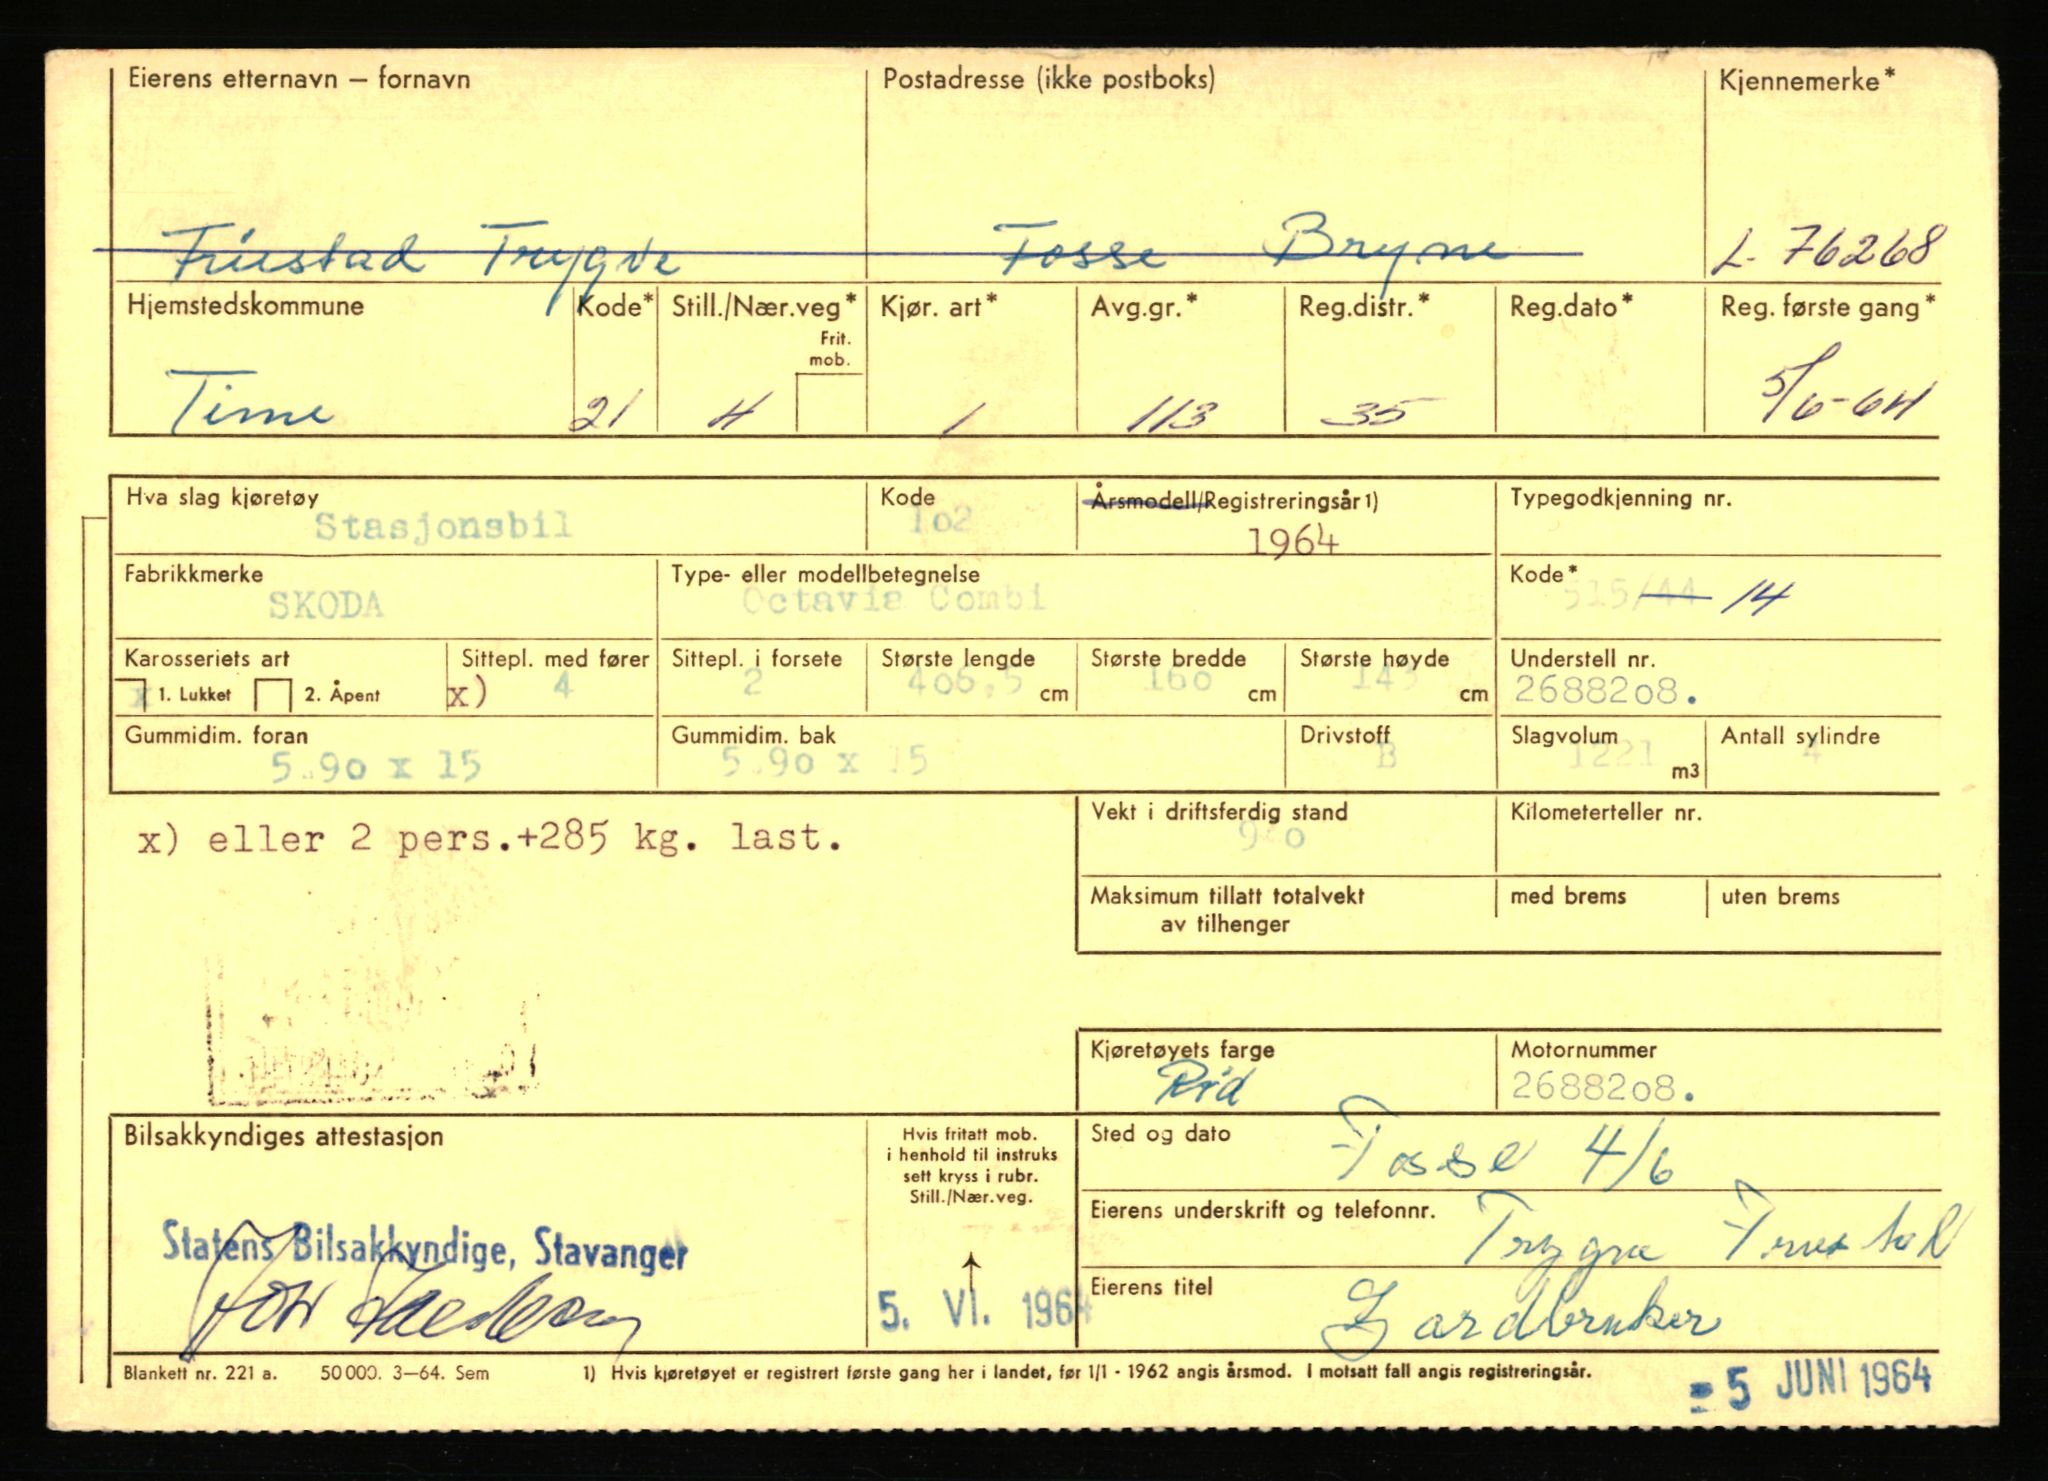 Eierens etternavn – fornavn Postadresse (ikke postboks) Kjennemerke*
Trygve Fosse Bryne L- 76268
Hjemstedskommune Kode* Still./Nær.veg* Kjør. art* Avg.gr.* Reg.distr.* Reg.dato* Reg. første gang*
Frit.
mob.
Time 21 4 1 113 35 5/6-64
Hva slag kjøretøy Kode Årsmodell/Registreringsår 1) Typegodkjenning nr.
Stasjonsbil 1o2 1964
Fabrikkmerke Type- eller modellbetegnelse Kode*
SKODA Octavia Combi 515/44 14
Karosseriets art Sittepl. med fører Sittepl. i forsete Største lengde Største bredde Største høyde Understell nr.
x 1. Lukket 2. Åpent x) 4 2 4o6,5 cm 16o cm 143 cm 26882o8.
Gummidim. foran Gummidim. bak Drivstoff Slagvolum Antall sylindre
5.9o x 15 5.9o x 15 B 1221 m3 4
Vekt i driftsferdig stand Kilometerteller nr.
x) eller 2 pers.+285 kg. last.
Maksimum tillatt totalvekt med brems uten brems
av tilhenger
Kjøretøyets farge Motornummer
Rød 26882o8.
Bilsakkyndiges attestasjon Hvis fritatt mob. Sted og dato Fosse 4/6
i henhold til instruks
sett kryss i rubr.
Still./Nær.veg.
Eierens underskrift og telefonnr. Trygve
Statens Bilsakkyndige, Stavanger
Eierens titel Gardbruker
5. VI. 1964
Blankett nr. 221 a. 50 000. 3–64. Sem 1) Hvis kjøretøyet er registrert første gang her i landet, før 1/1 - 1962 angis årsmod. I motsatt fall angis registreringsår.
- 5 JUNI 1964